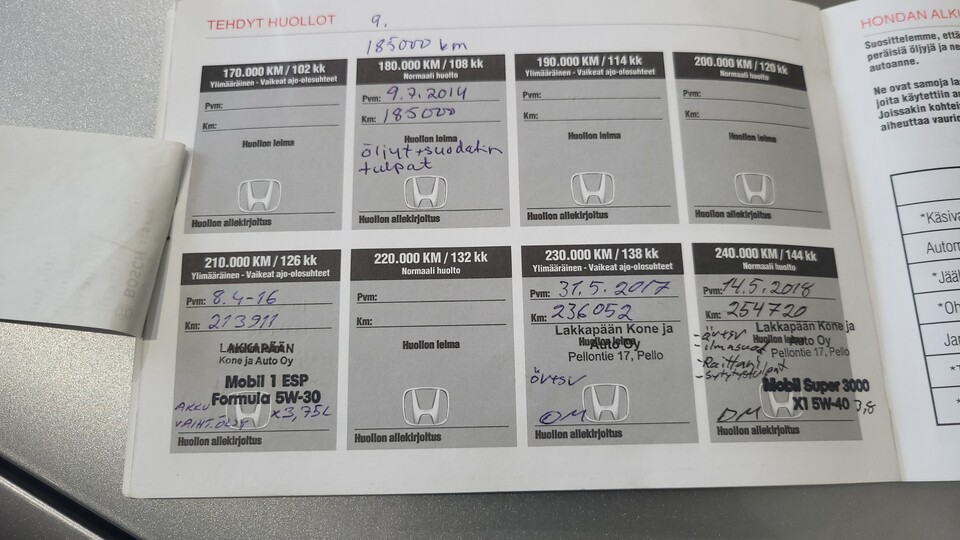 TEHDYT HUOLLOT
9.
185000 km
170.000 KM / 102 kk
Ylimääräinen - Vaikeat ajo-olosuhteet
Pvm:
Km:
Huollon leima
Huollon allekirjoitus
180.000 KM / 108 kk
Normaali huolto
Pvm: 9.7.2014
Km: 185000
Huollon leima
öljyt+suodatin
tulpat
Huollon allekirjoitus
190.000 KM / 114 kk
Ylimääräinen - Vaikeat ajo-olosuhteet
Pvm:
Km:
Huollon leima
Huollon allekirjoitus
200.000 KM / 120 kk
Normaali huolto
Pvm:
Km:
Huollon leima
Huollon allekirjoitus
210.000 KM / 126 kk
Ylimääräinen - Vaikeat ajo-olosuhteet
Pvm: 8.4-16
Km: 213911
LAKKAPÄÄN
Kone ja Auto Oy
Mobil 1 ESP
Formula 5W-30
AKKU x3,75L
VAIHT.
Huollon allekirjoitus
220.000 KM / 132 kk
Normaali huolto
Pvm:
Km:
Huollon leima
Huollon allekirjoitus
230.000 KM / 138 kk
Ylimääräinen - Vaikeat ajo-olosuhteet
Pvm: 31.5.2017
Km: 236052
Lakkapään Kone ja
Huollon leima
Auto Oy
Pellontie 17, Pello
övtsv
OM
Huollon allekirjoitus
240.000 KM / 144 kk
Normaali huolto
Pvm: 14.5.2018
Km: 254720
Lakkapään Kone ja
Auto Oy
Pellontie 17, Pello
- övtsv
- ilmasuod
- Raittisni
- sytytystulpat
Mobil Super 3000
X1 5W-40 3,8
OM
Huollon allekirjoitus
BOSCH
HONDAN ALK
Suosittelemme, että
peräisiä öljyjä ja ne
autoanne.
Ne ovat samoja la
joita käytettiin a
Joissakin kohteis
aiheuttaa vaurio
*Käsiva
Autom
*Jääh
*Oh
Jar